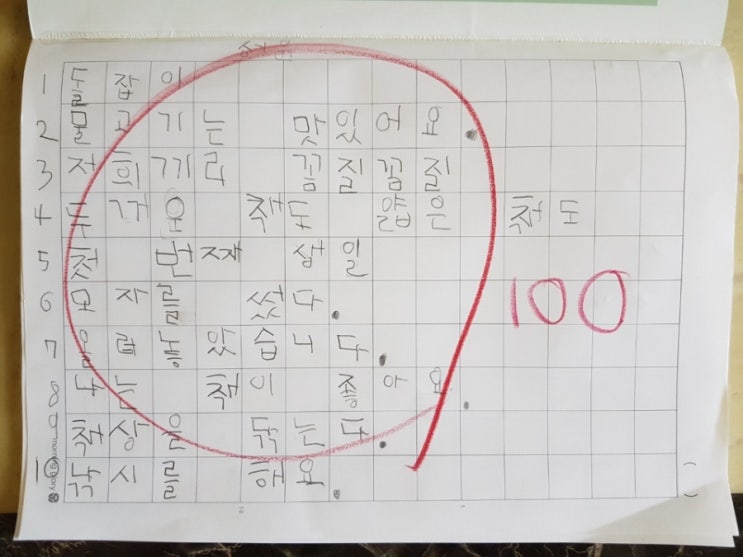 1 돌잡이
2 물고기는 맛있어요.
3 저희끼리 꼼질꼼질
4 두꺼운 책도 얇은 책도
5 첫 번째
6 모자를 썼다.
7 올려놓았습니다.
8 나는 책이 좋아요.
9 책상을 닦는다.
10 낚시를 해요.
100